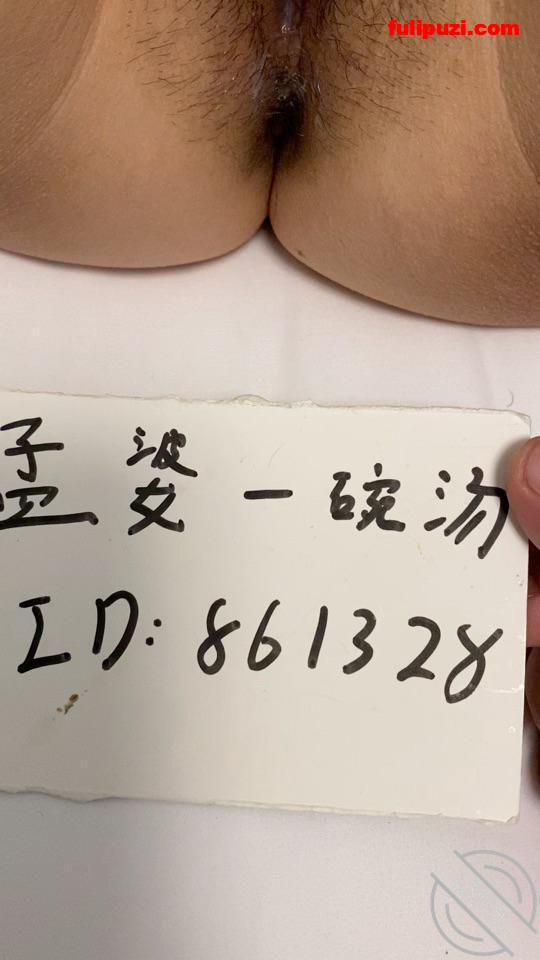 fulipuzi.com
孟婆一碗汤
ID: 861328